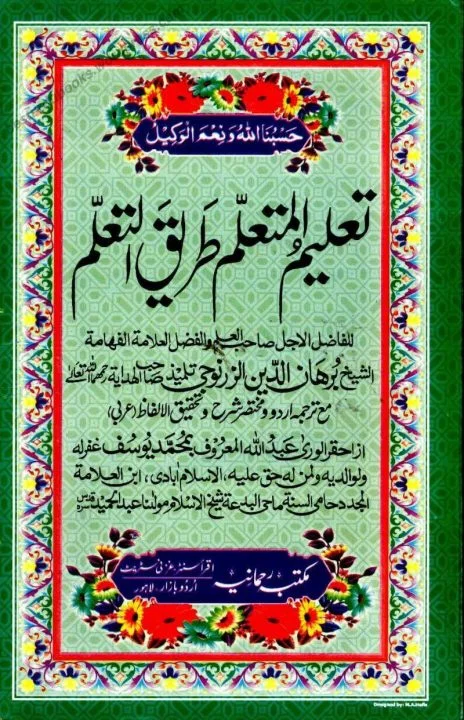 حَسْبُنَا اللهُ وَنِعْمَ الْوَكِيْلُ
تعليمُ المتعلّم طَرِيقَ التعلّم
للفاضل الاجل صاحب العلم والفضل العلامة الفهامة
الشيخ بُرهان الدّين الزرنوجی تلمیذ صاحب الهداية رحمهما الله تعالى
مع ترجمہ اردو و مختصر شرح و تحقیق الالفاظ (عربی)
از احقر الوری عبد الله المعروف بمحمد یوسف غفرله
ولوالدیه ولمن له حق علیه، الاسلام آبادی، ابن العلامة
المجدد حامی السنة ماحی البدعة شیخ الاسلام مولٰنا عبد الحمید قدس سره
مکتبہ رحمانیہ
اقرأ سنٹر غزنی سٹریٹ
اُردو بازار۔ لاہور
Designed by: M.A.Hafiz